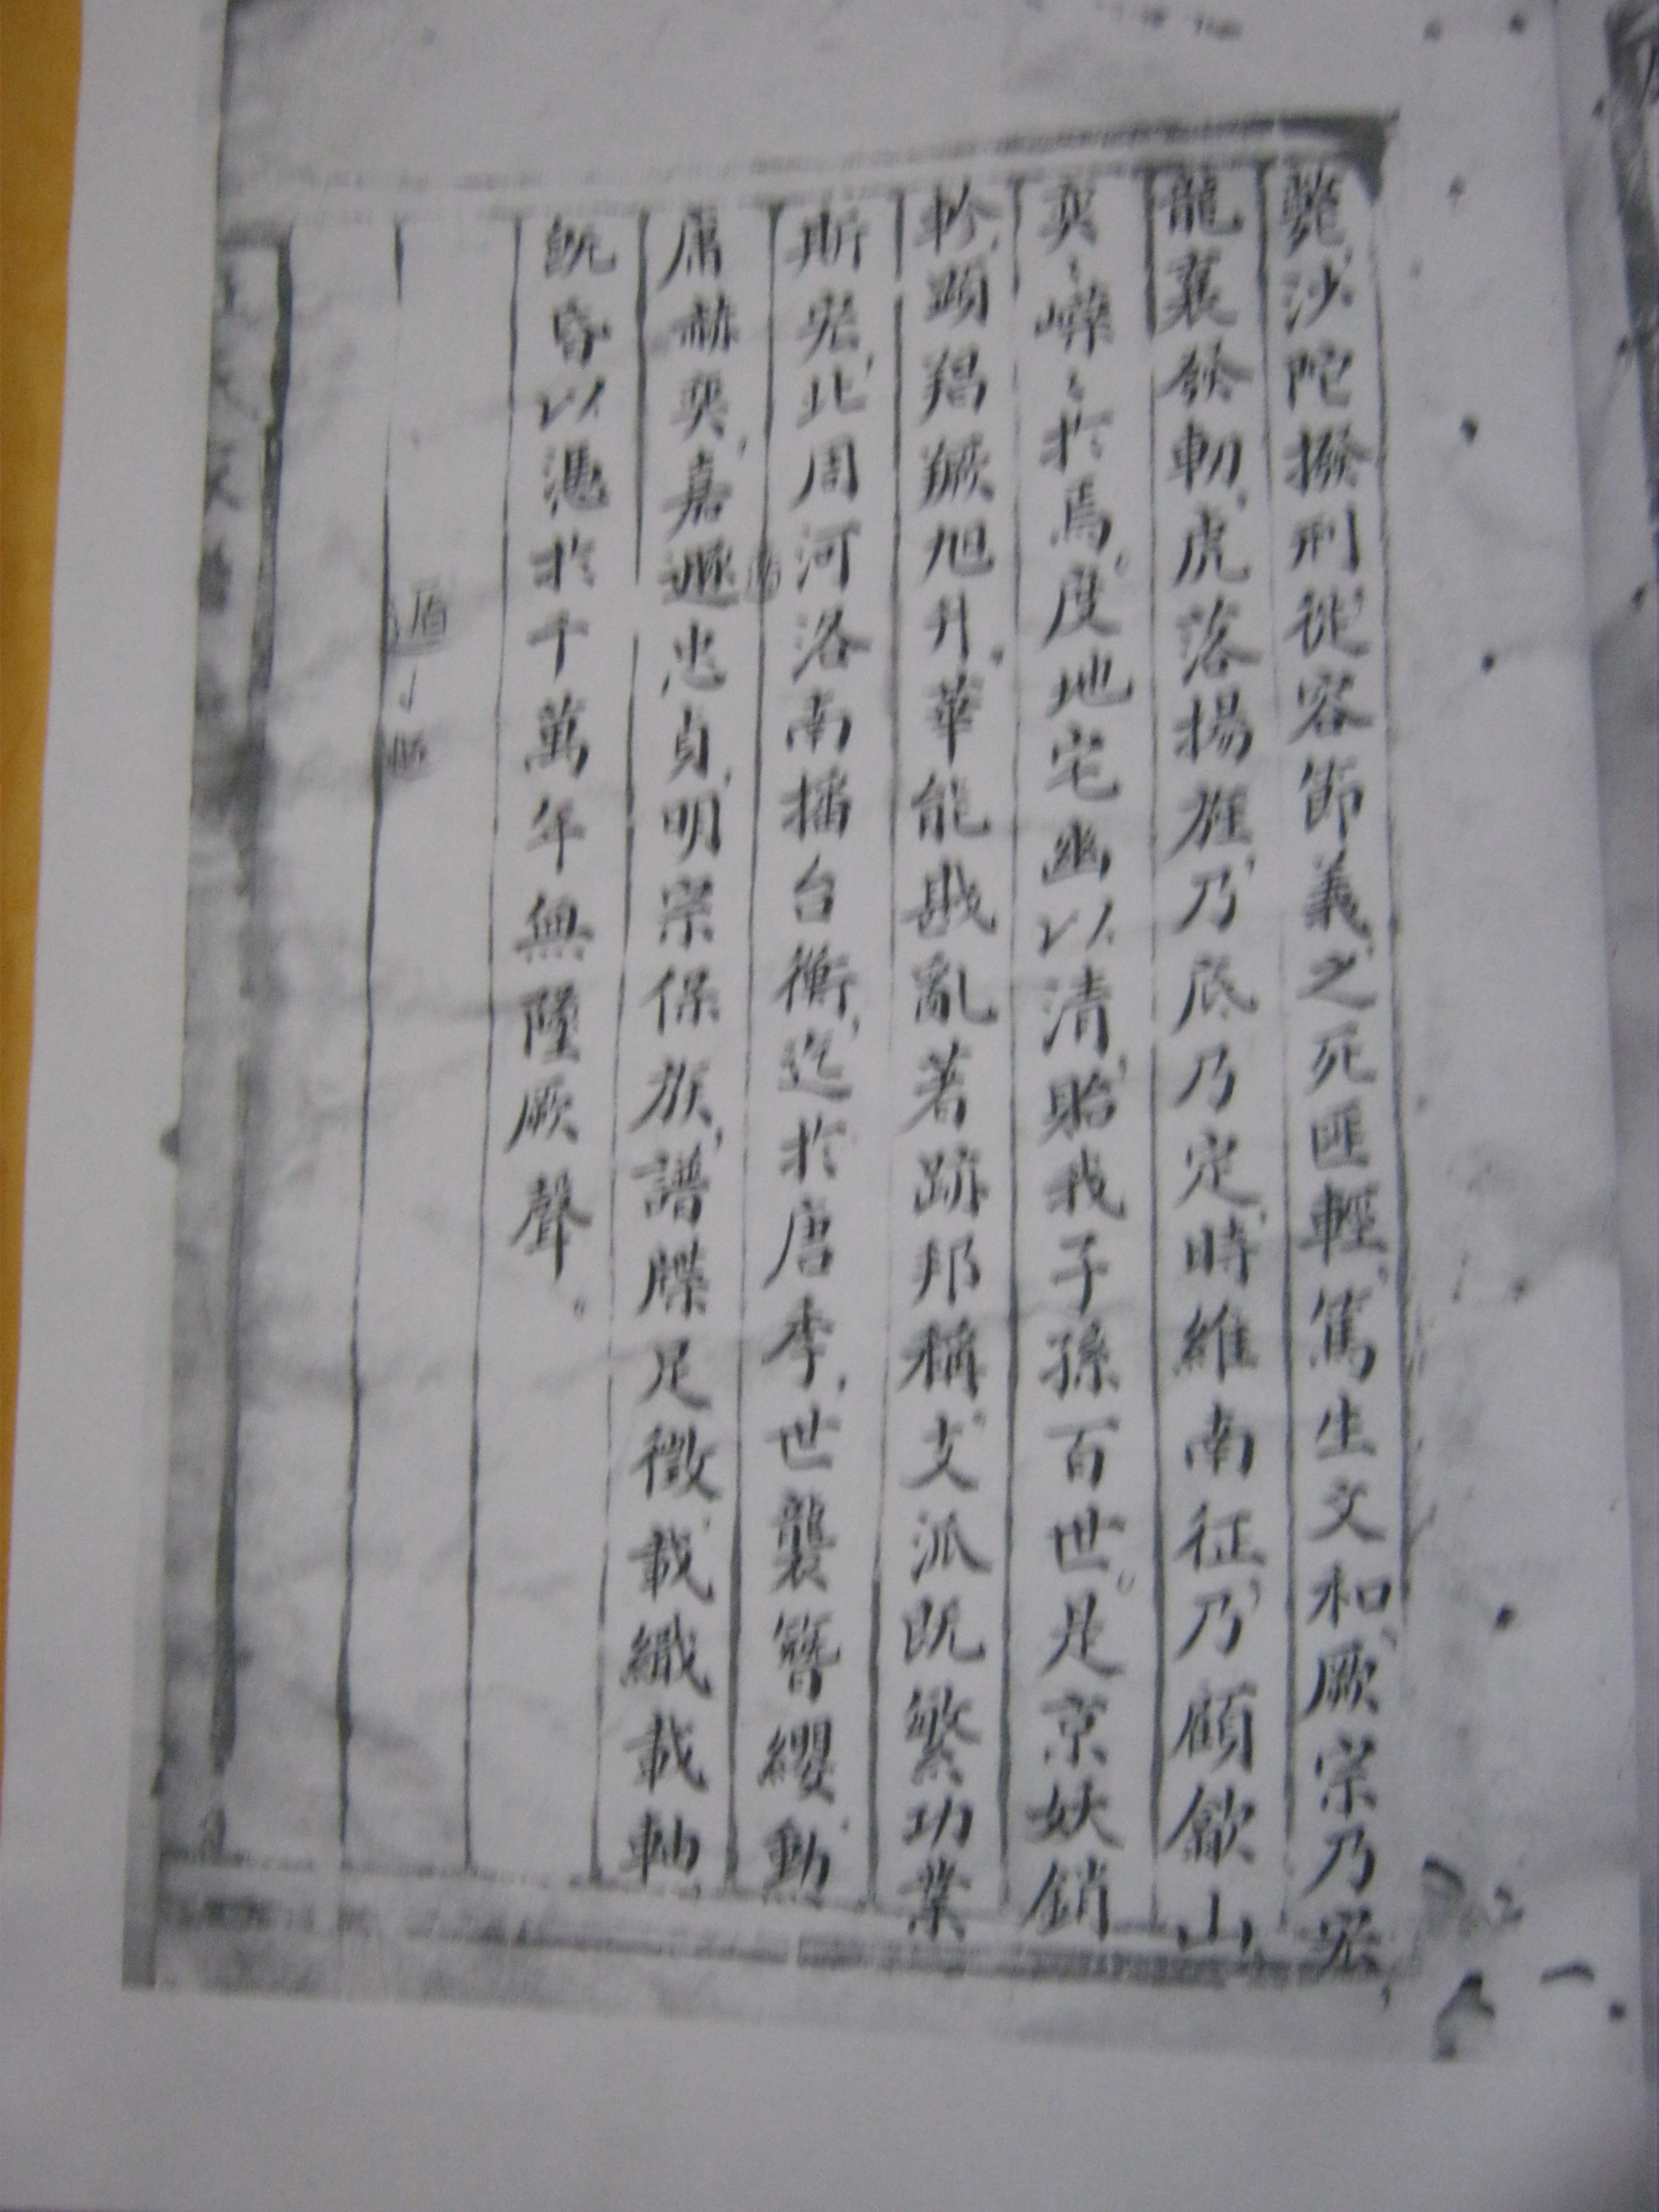 薨沙陀撥刑從容節義之死匪輕篤生文和厥宗乃宏
龍襄發軔虎落揚旌乃底乃定時維南征乃顧歙山
爰〻嶸〻於焉度地宅幽以清貽我子孫百世是京妖銷
軫顕猖獗旭升華能戡亂著跡邦稱支派既繁功業
斯宏北周河洛南播台衡迄於唐季世襲簪纓勳
庸赫奕嘉遯忠貞明宗保族譜牒足徵載纖載軸
既昏以憑於千萬年無墜厥聲